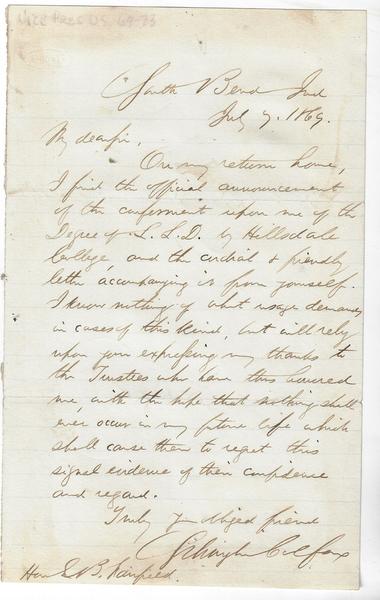 Vice Pres U.S. 69-73
South Bend Ind
July 7. 1869.
My dear sir,
On my return home,
I find the official announcement
of the conferment upon me of the
Degree of L. L. D. by Hillsdale
College, and the cordial & friendly
letter accompanying it from yourself.
I know nothing of what usage demands
in cases of this kind, but will rely
upon your expressing my thanks to
the Trustees who have thus honored
me, with the hope that nothing shall
ever occur in my future life which
shall cause them to regret this
signal evidence of their confidence
and regard.
Truly Yr obliged friend
Schuyler Colfax
Hon E. B. Fairfield.